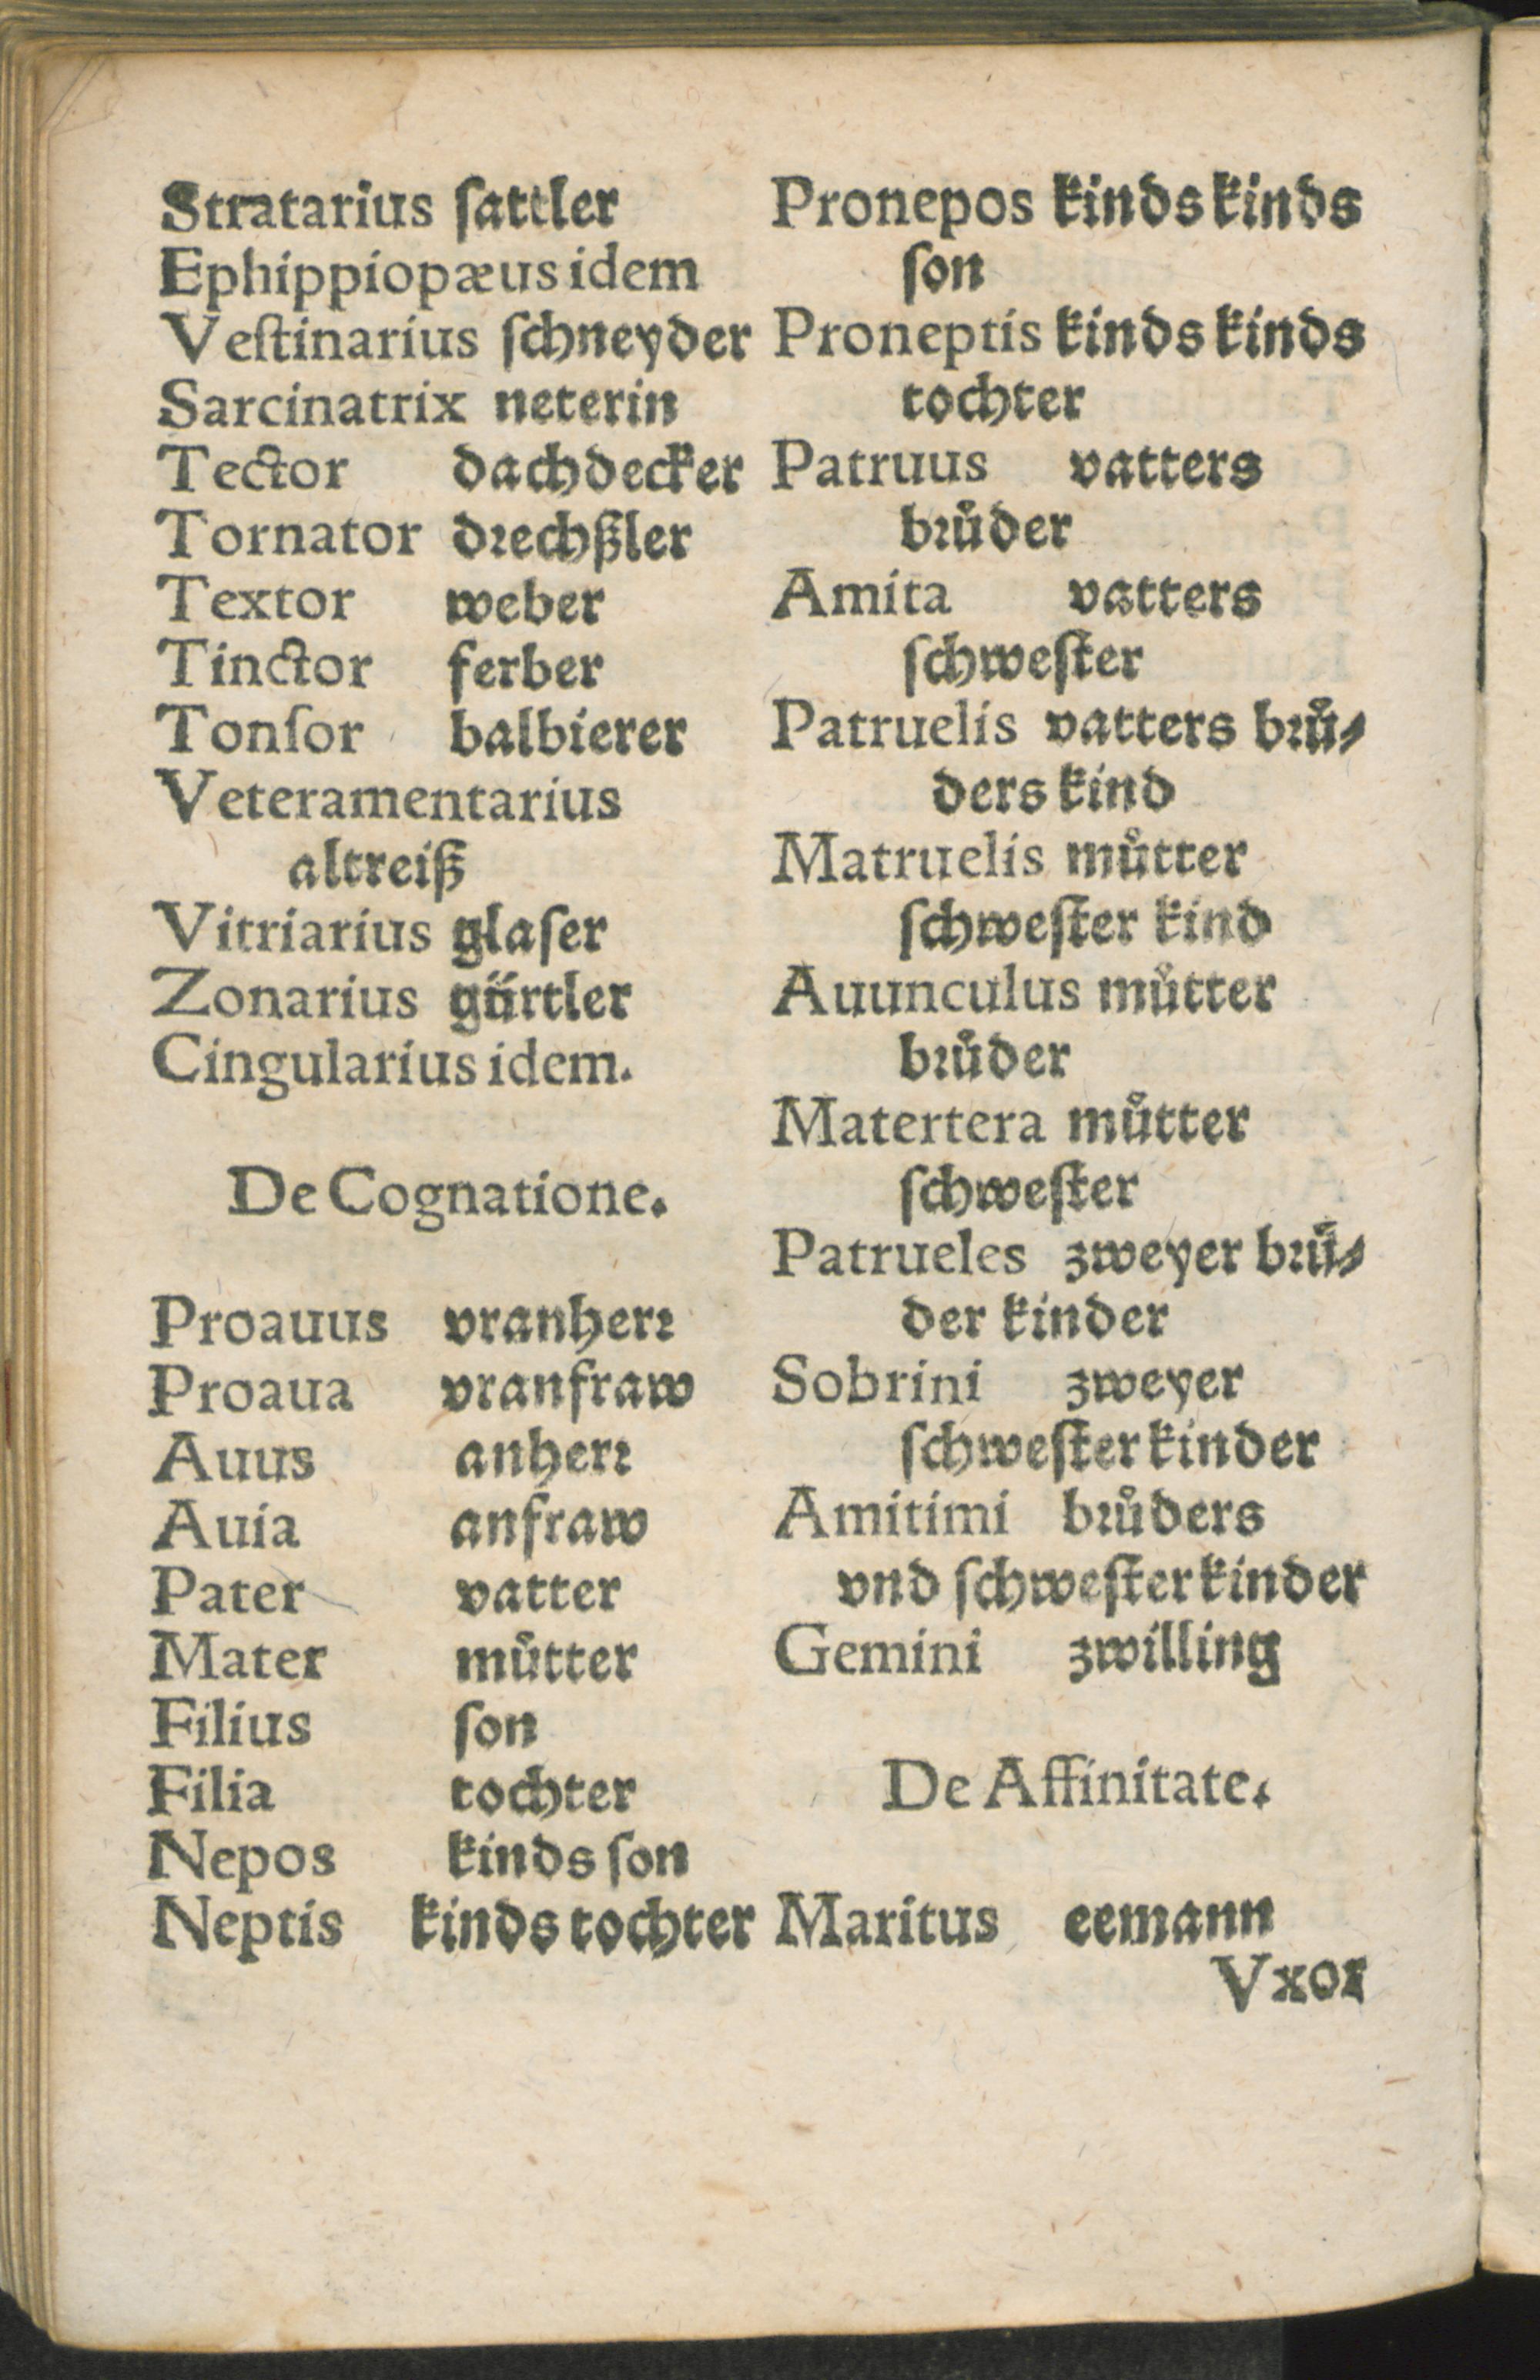 Stratarius ſattler
Ephippiopæus idem
Veſtinarius ſchneyder
Sarcinatrix neterin
Tector dachdecker
Tornator drechßler
Textor weber
Tinctor ferber
Tonſor balbierer
Veteramentarius
altreiß
Vitriarius glaſer
Zonarius gürtler
Cingularius idem.
De Cognatione.
Proauus vranherr
Proaua vranfraw
Auus anherr
Auia anfraw
Pater vatter
Mater můtter
Filius ſon
Filia tochter
Nepos kinds ſon
Neptis kinds tochter
Pronepos kinds kinds
ſon
Proneptis kinds kinds
tochter
Patruus vatters
brůder
Amita vatters
ſchweſter
Patruelis vatters brů⸗
ders kind
Matruelis můtter
ſchweſter kind
Auunculus můtter
brůder
Matertera můtter
ſchweſter
Patrueles zweyer brü⸗
der kinder
Sobrini zweyer
ſchweſter kinder
Amitimi brůders
vnd ſchweſter kinder
Gemini zwilling
De Affinitate.
Maritus eemann
Vxor